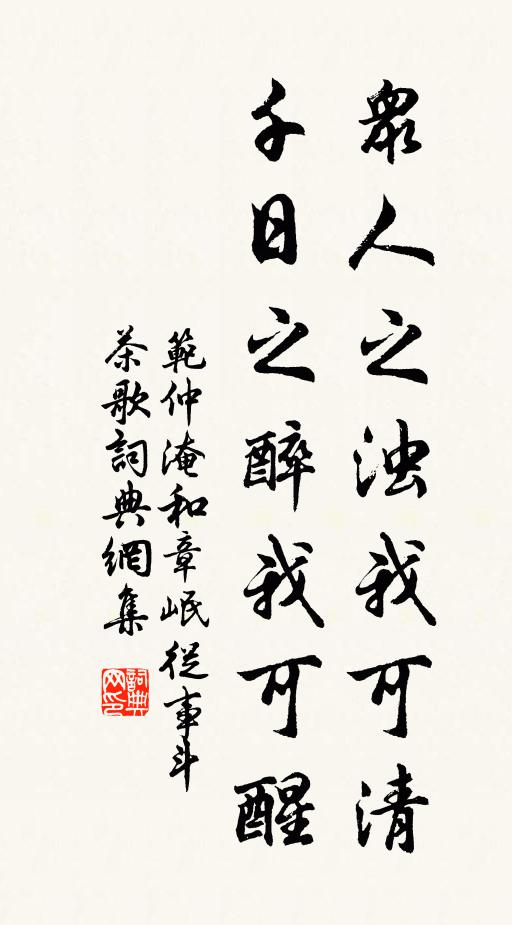 眾人之浊我可清
千日之醉我可醒
範仲淹和章岷從事斗
茶歌詞典網集
詞典
网印